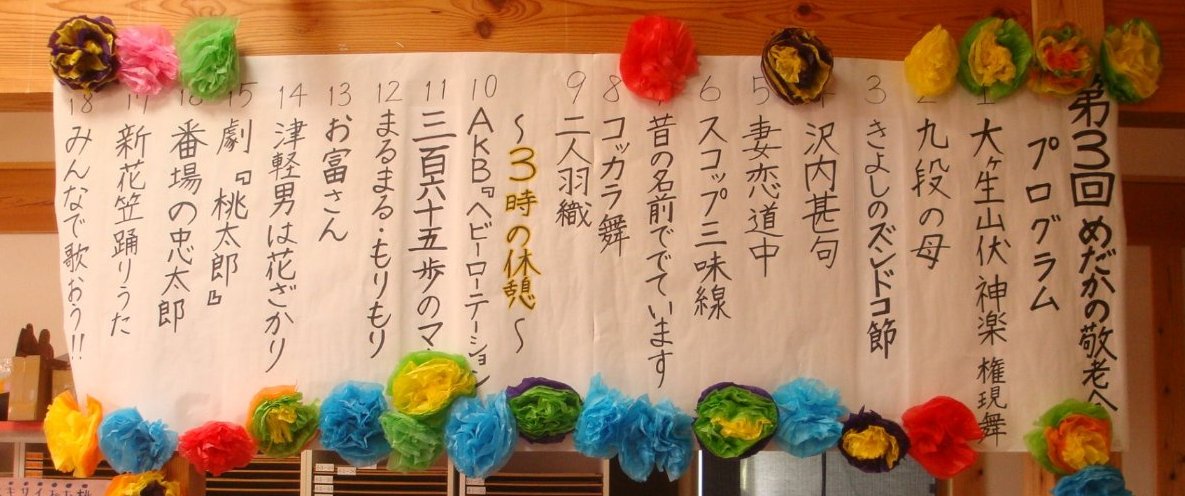 第3回 めだかの敬老へ
プログラム
1 大笙山伏神楽 権現舞
2 九段の母
3 きよしのズンドコ節
4 沢内甚句
5 妻恋道中
6 スコップ三味線
7 昔の名前ででています
8 コッカラ舞
9 二人羽織
～3時の休憩～
10 AKB『ヘビーローテーション
11 三百六十五歩のマ
12 まるまる・もりもり
13 お富さん
14 津軽男は花ざかり
15 劇『桃太郎』
16 番場の忠太郎
17 新花笠踊りうた
18 みんなで歌おう!!